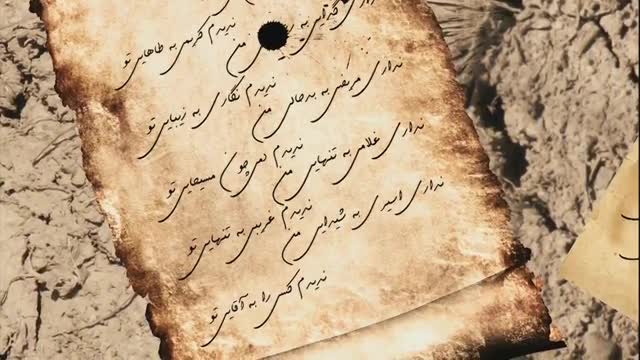 نداری گدایی به من
ندیدم کریمی به طاهایی تو
نداری مریضی به بدحالی من
ندیدم نگاری به زیبایی تو
نداری غلامی به تنهایی من
ندیدم چون مسیحایی تو
نداری اسیری به شیدایی من
ندیدم غریبی به تنهایی تو
ندیدم کسی را به آقایی تو